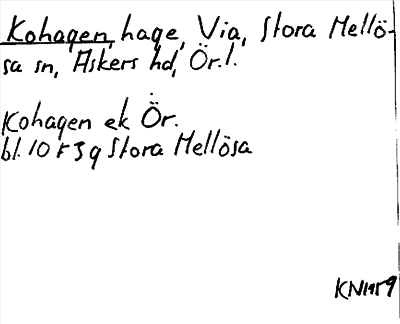 Kohagen, hage, Via, Stora Mellö-
sa sn, Askers hd, Ör.l.
Kohagen ek Ör.
bl. 10 r 3 g Stora Mellösa
KN1959